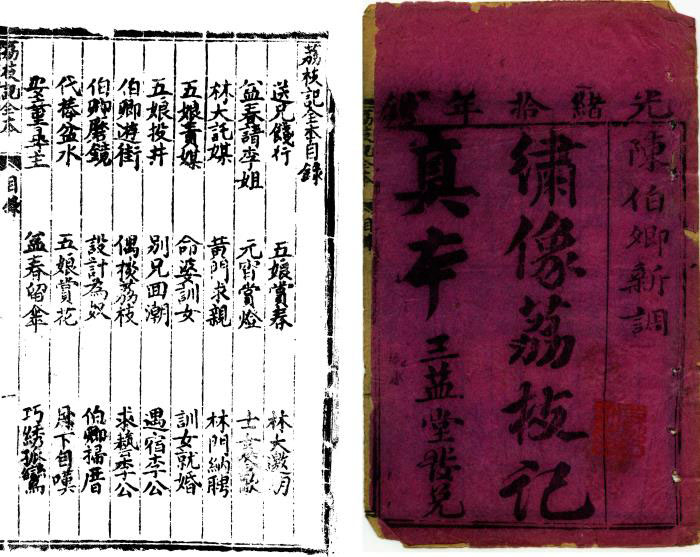 荔枝記全本目錄
送兄餞行 五娘賞春 林大邀月
益春請李姐 元宵賞燈 士女答歌
林大託媒 黃門求親 林門納聘
五娘責媒 命婆訓女 訓女就婚
五娘投井 別兄囬潮 遇宿李公
伯卿遊街 偶投荔枝 求藝李公
伯卿磨鏡 設計為奴 伯卿掃厝
代捧盆水 五娘賞花 月下自嘆
安童尋主 益春留傘 巧綉孤鸞
荔枝記全本 目錄
光緒拾年
陳伯卿新調
繡像荔枝記
真本 三益堂發兌
荔枝記全本 目錄